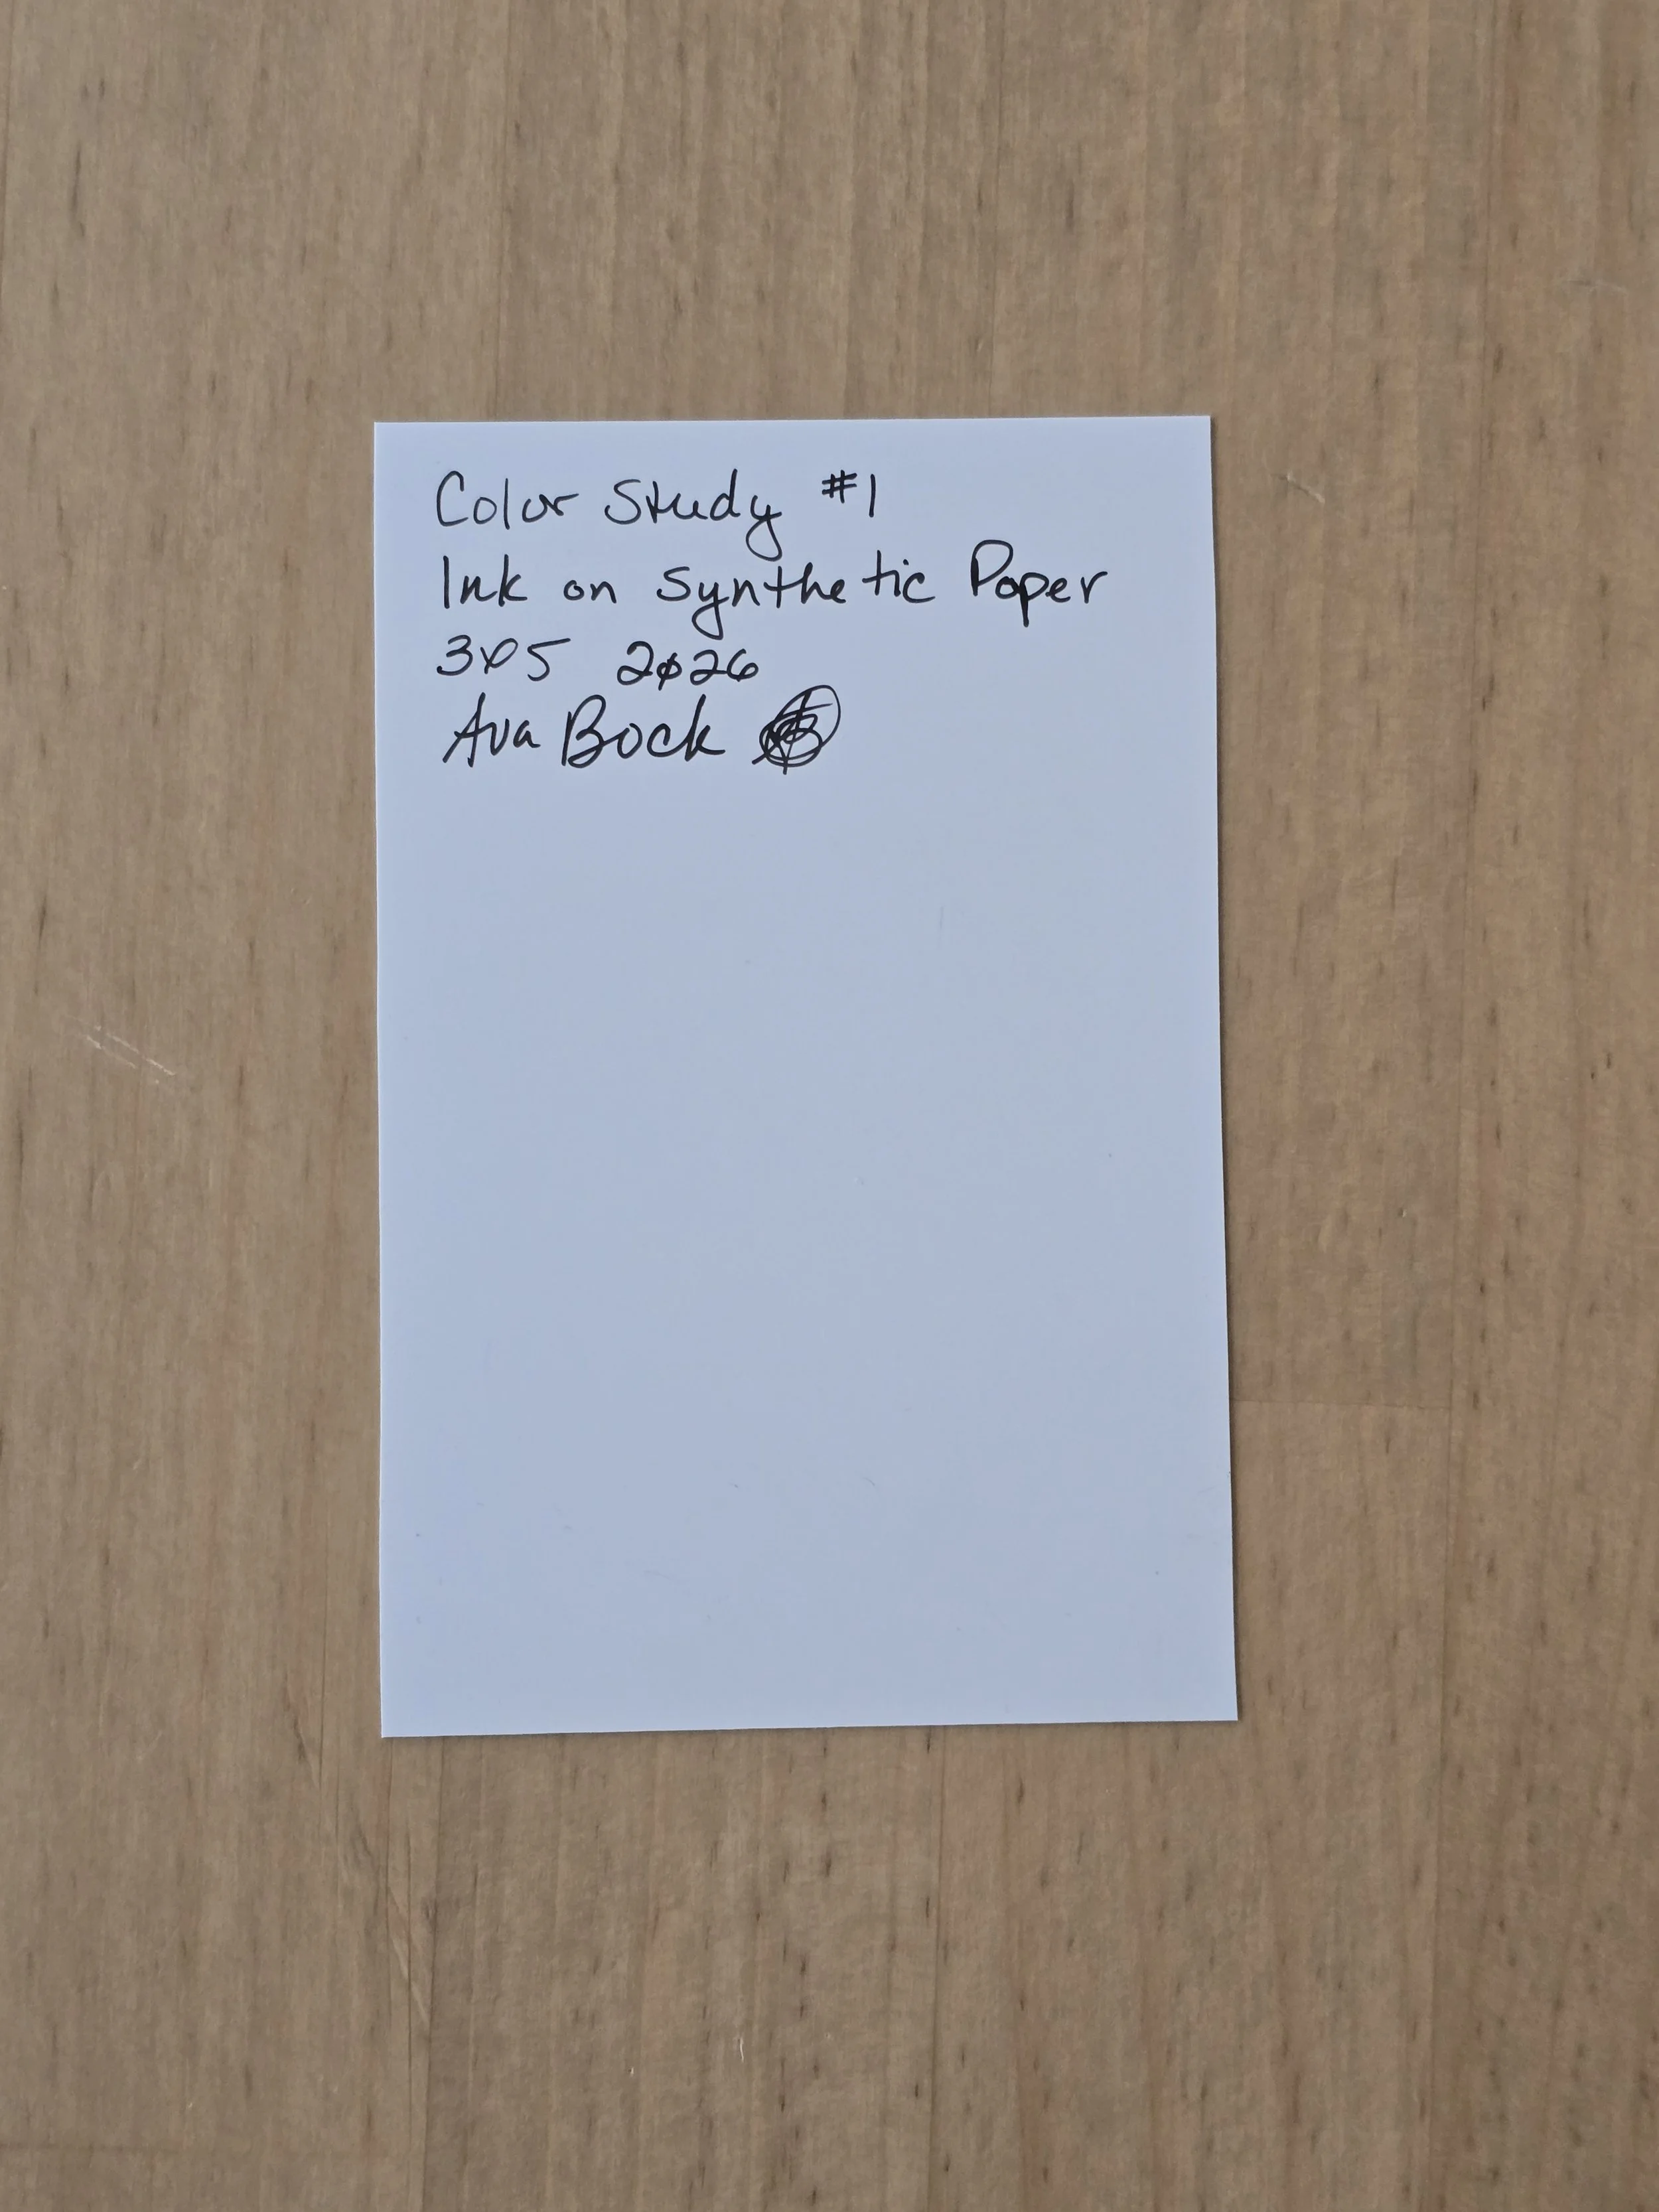 Color Study #1
Ink on Synthetic Paper
3x5 2026
Ava Bock